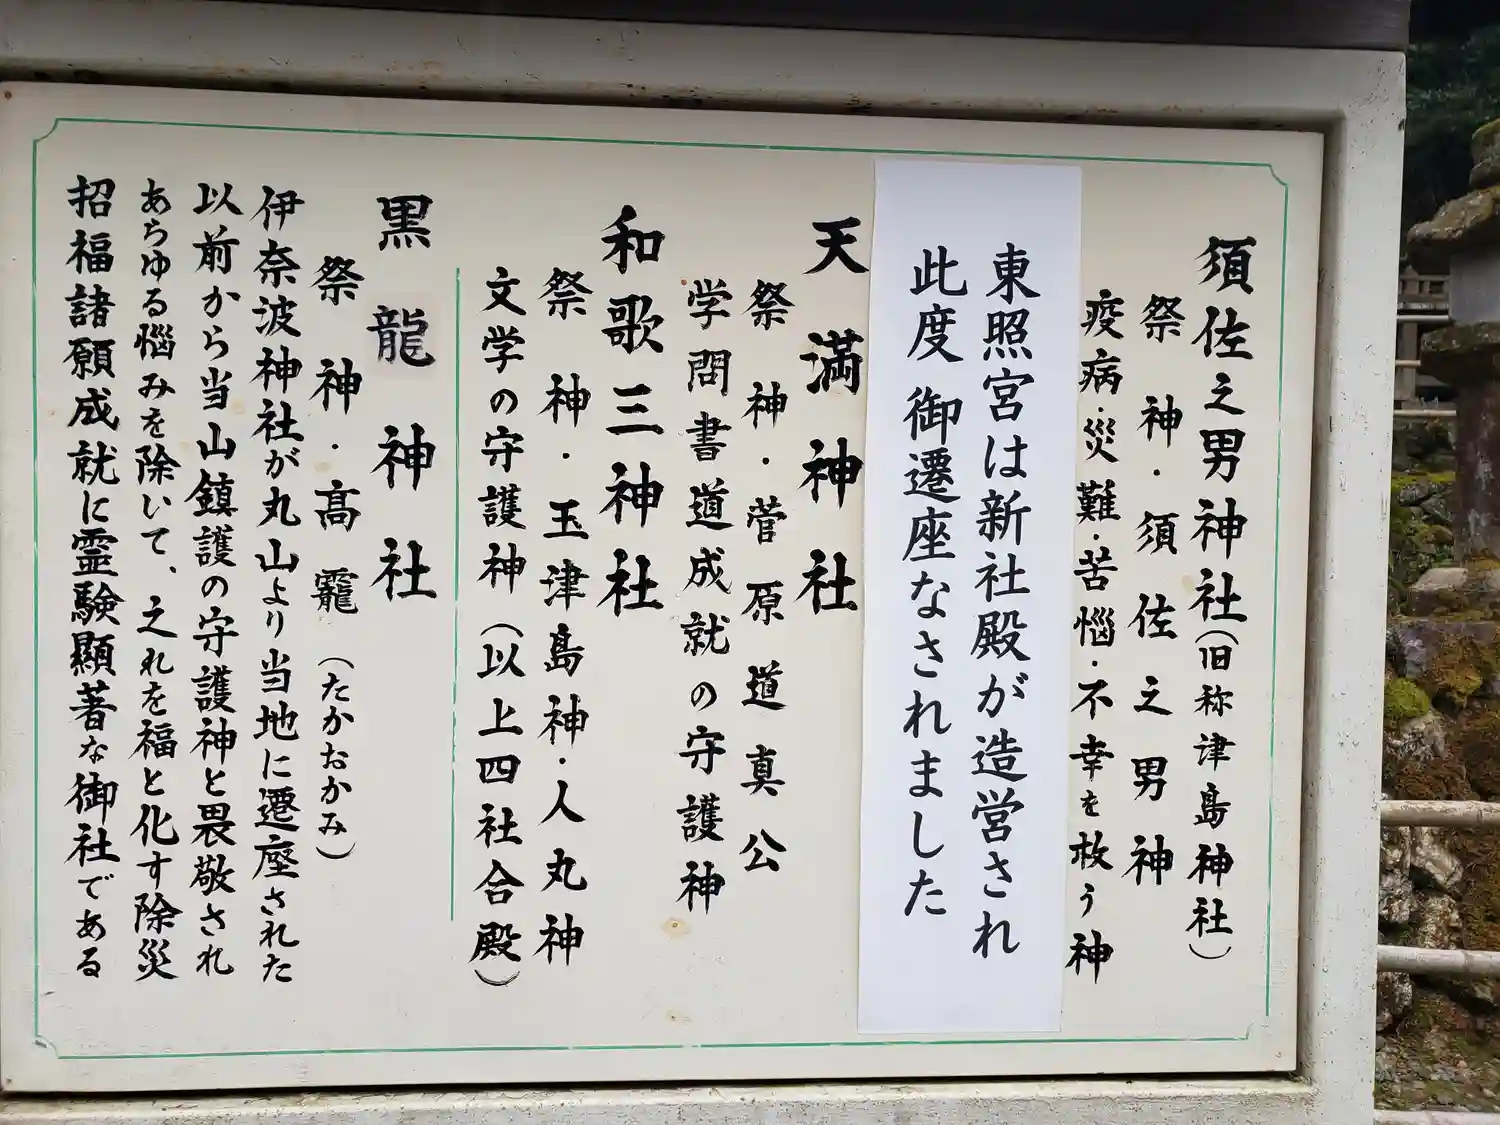 須佐之男神社(旧称津島神社)
祭神・須佐之男神
疫病・災難・苦悩・不幸を救う神
東照宮は新社殿が造営され
此度 御遷座なされました
天満神社
祭神・菅原道真公
学問書道成就の守護神
和歌三神社
祭神・玉津島神・人丸神
文学の守護神(以上四社合殿)
黒龍神社
祭神・高龗(たかおかみ)
伊奈波神社が丸山より当地に遷座された
以前から当山鎮護の守護神と畏敬され
あらゆる悩みを除いて、之れを福と化す除災
招福諸願成就に霊験顯著な御社である